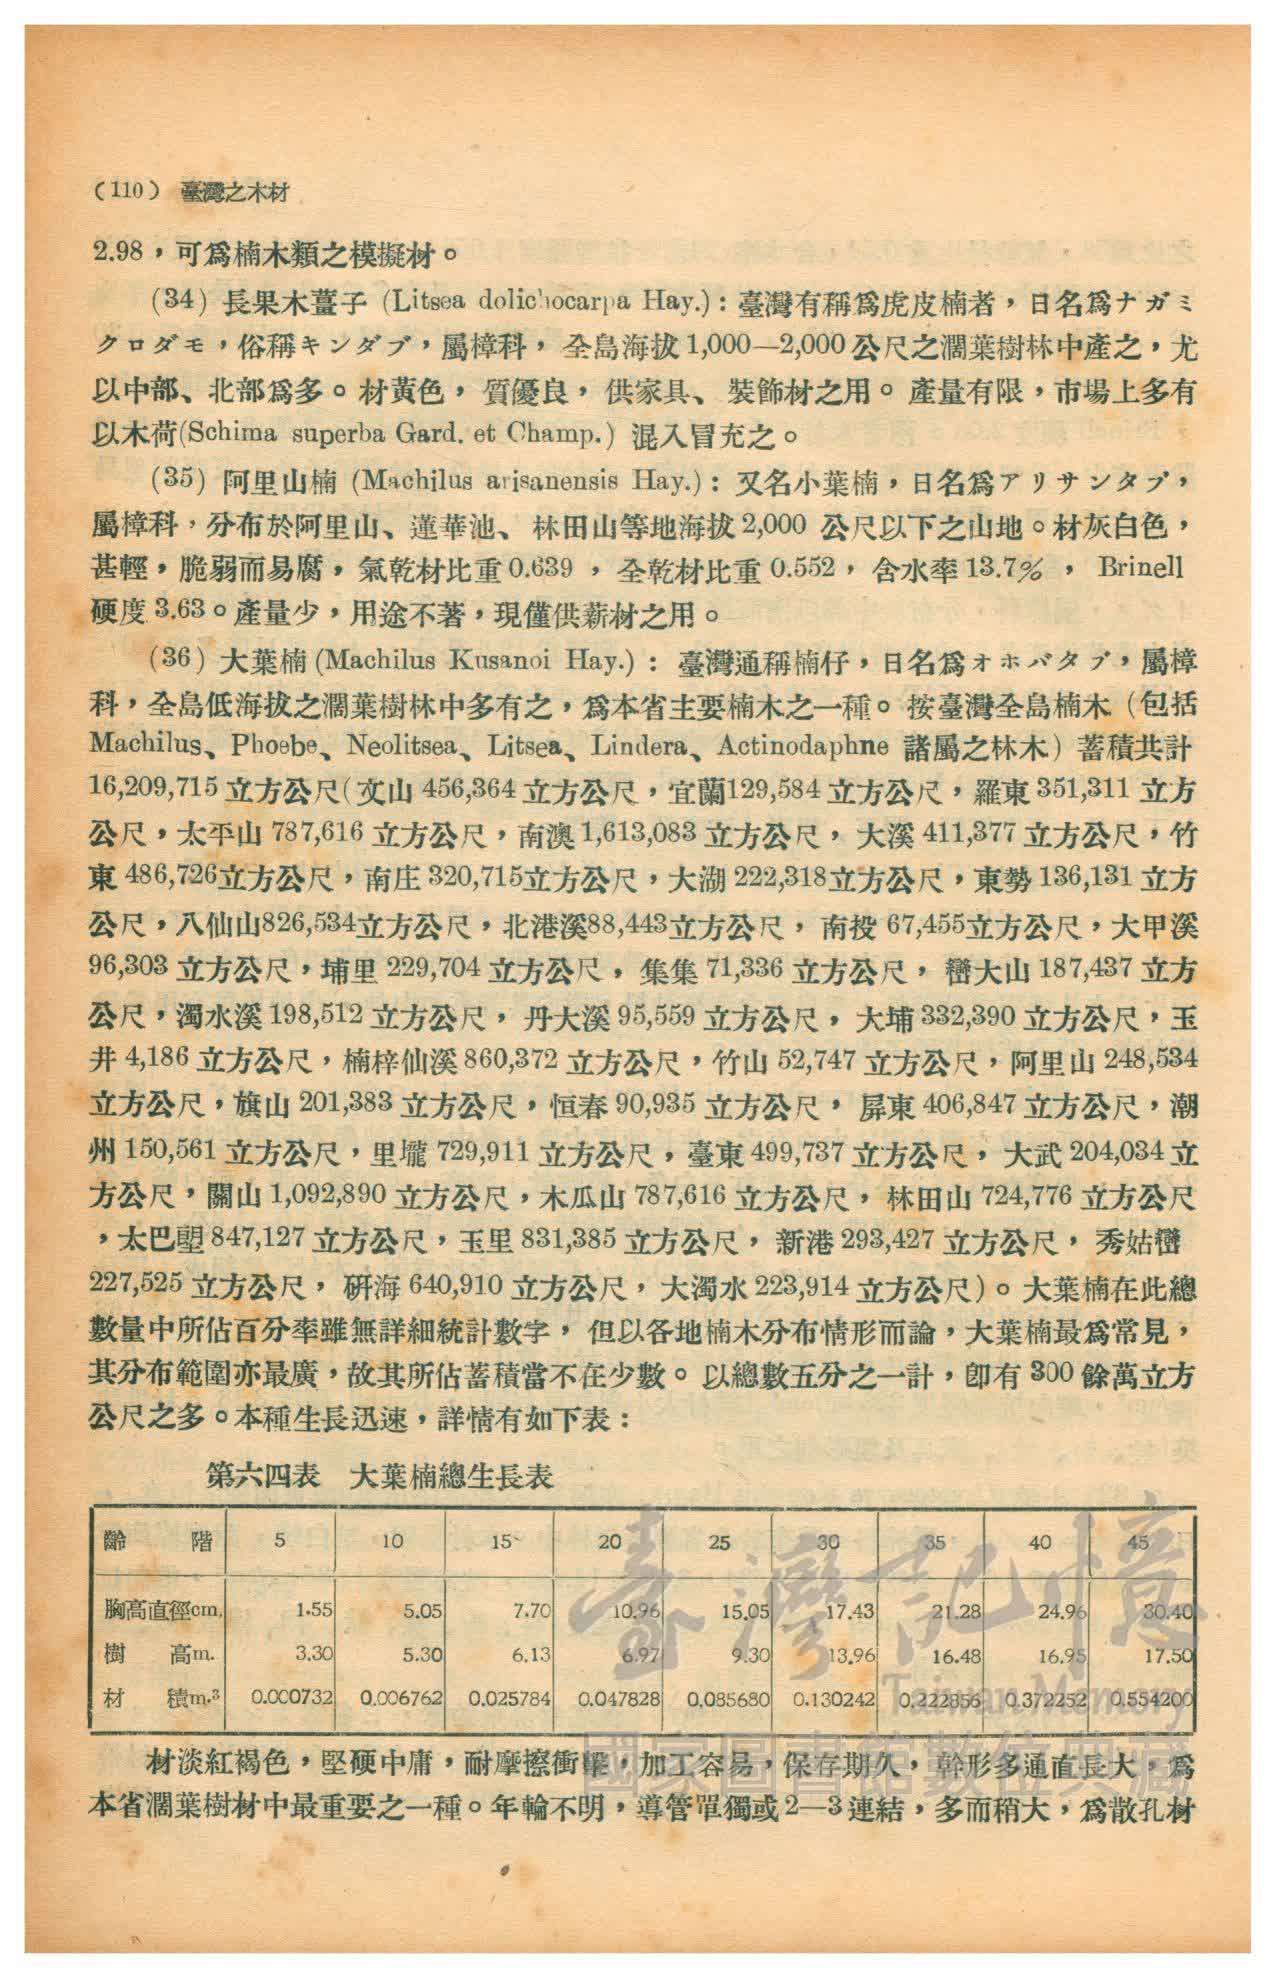 (110) 臺灣之木材
2.98，可爲楠木類之模擬材。
(34) 長果木薑子 (Litsea dolichocarpa Hay.)：臺灣有稱爲虎皮楠者，日名爲ナガミ
クロダモ，俗稱キンダブ，屬樟科，全島海拔1,000—2,000公尺之濶葉樹林中產之，尤
以中部、北部爲多。材黃色，質優良，供家具、裝飾材之用。產量有限，市場上多有
以木荷(Schima superba Gard. et Champ.) 混入冒充之。
(35) 阿里山楠 (Machilus arisanensis Hay.)：又名小葉楠，日名爲アリサンタブ，
屬樟科，分布於阿里山、蓮華池、林田山等地海拔2,000 公尺以下之山地。材灰白色，
甚輕，脆弱而易腐，氣乾材比重0.639，全乾材比重0.552，含水率13.7%，Brinell
硬度3.63。產量少，用途不著，現僅供薪材之用。
(36) 大葉楠(Machilus Kusanoi Hay.)：臺灣通稱楠仔，日名爲オホバタブ，屬樟
科，全島低海拔之濶葉樹林中多有之，爲本省主要楠木之一種。按臺灣全島楠木 (包括
Machilus、Phoebe、Neolitsea、Litsea、Lindera、Actinodaphne 諸屬之林木) 蓄積共計
16,209,715立方公尺(文山456,364立方公尺，宜蘭129,584立方公尺，羅東351,311立方
公尺，太平山787,616立方公尺，南澳1,613,083立方公尺，大溪411,377立方公尺，竹
東486,726立方公尺，南庄320,715立方公尺，大湖222,318立方公尺，東勢136,131立方
公尺，八仙山826,534立方公尺，北港溪88,443立方公尺，南投67,455立方公尺，大甲溪
96,303立方公尺，埔里229,704立方公尺，集集71,336立方公尺，巒大山187,437立方
公尺，濁水溪198,512立方公尺，丹大溪95,559立方公尺，大埔332,390立方公尺，玉
井4,186立方公尺，楠梓仙溪860,372立方公尺，竹山52,747立方公尺，阿里山248,534
立方公尺，旗山201,383立方公尺，恒春90,935立方公尺，屏東406,847立方公尺，潮
州150,561立方公尺，里壠729,911立方公尺，臺東499,737立方公尺，大武204,034立
方公尺，關山1,092,890立方公尺，木瓜山787,616立方公尺，林田山724,776立方公尺
，太巴塱847,127立方公尺，玉里831,385立方公尺，新港293,427立方公尺，秀姑巒
227,525立方公尺，硏海640,910立方公尺，大濁水223,914立方公尺)。大葉楠在此總
數量中所佔百分率雖無詳細統計數字，但以各地楠木分布情形而論，大葉楠最爲常見，
其分布範圍亦最廣，故其所佔蓄積當不在少數。以總數五分之一計，卽有300餘萬立方
公尺之多。本種生長迅速，詳情有如下表：
第六四表 大葉楠總生長表
齡階 5 10 15 20 25 30 35 40 45
胸高直徑cm. 1.55 5.05 7.70 10.96 15.05 17.43 21.28 24.96 30.40
樹高m. 3.30 5.30 6.13 6.97 9.30 13.96 16.48 16.95 17.50
材積m.³ 0.000732 0.006762 0.025784 0.047828 0.085680 0.130242 0.222856 0.372252 0.554200
材淡紅褐色，堅硬中庸，耐摩擦衝擊，加工容易，保存期久，幹形多通直長大，爲
本省濶葉樹材中最重要之一種。年輪不明，導管單獨或2—3連結，多而稍大，爲散孔材
臺灣記憶
Taiwan Memory
國家圖書館數位典藏